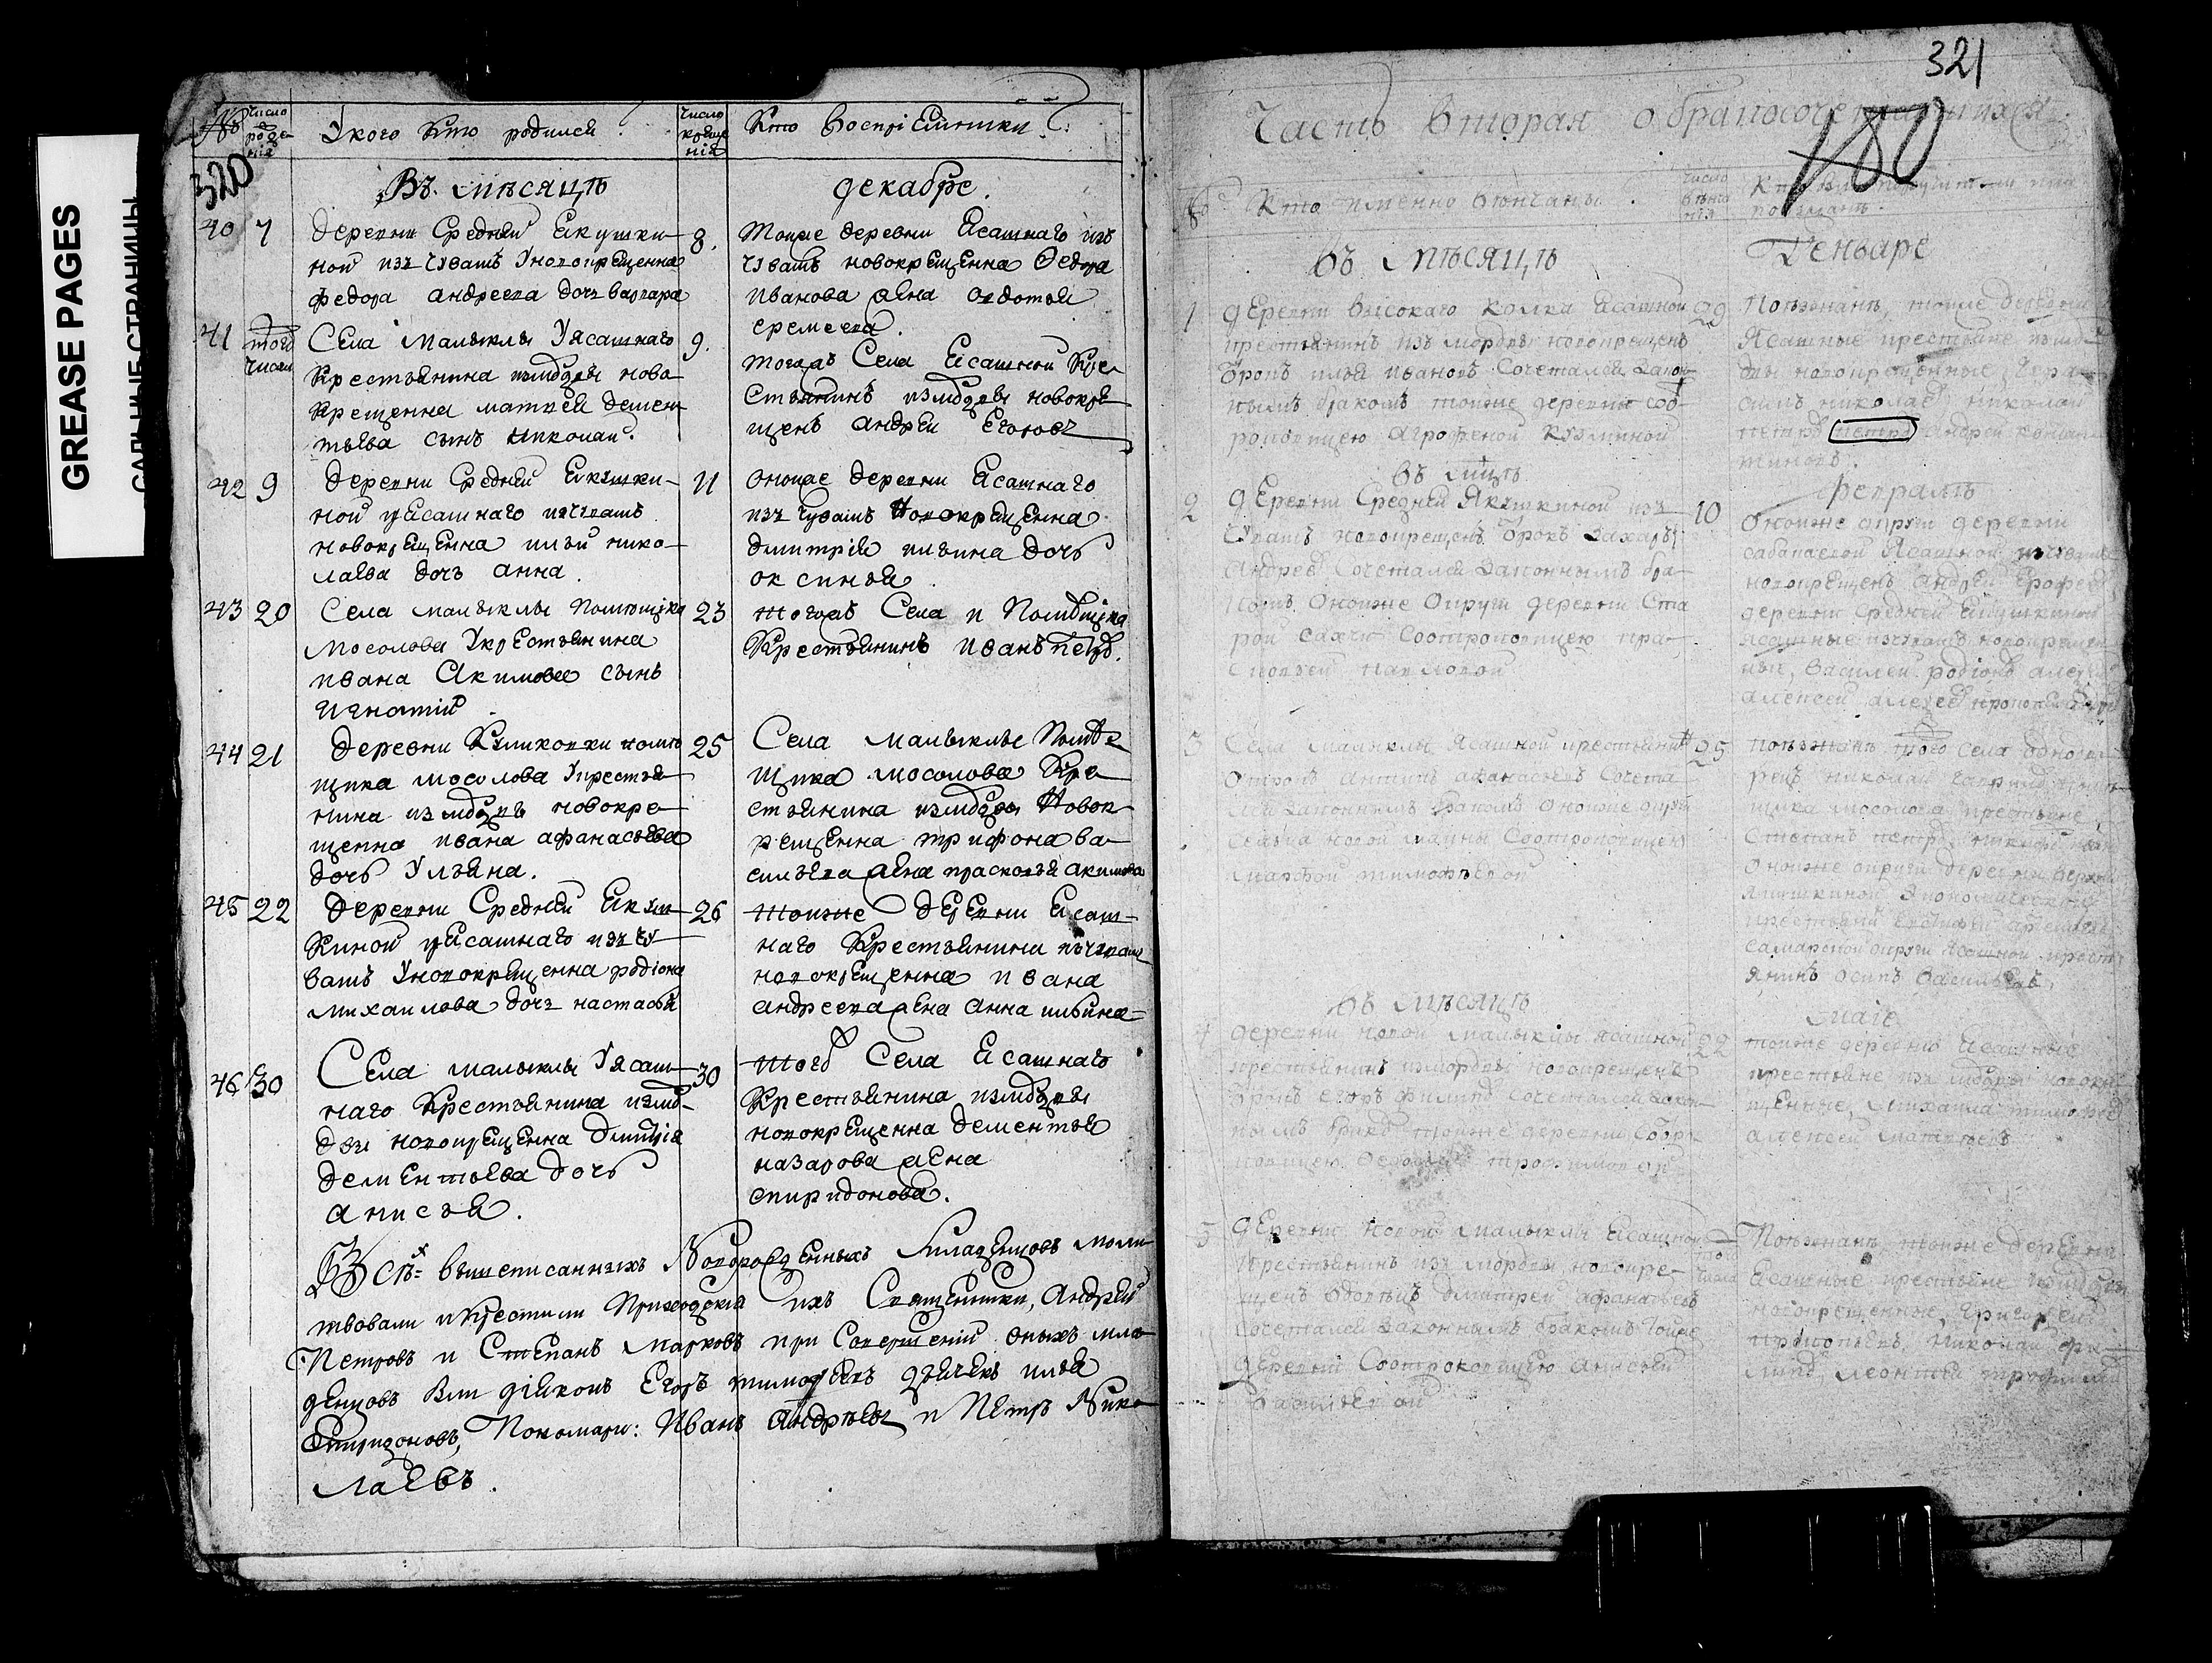 GREASE PAGES
САЛЬНЫЕ СТРАНИЦЫ
№
Число рожде
нія
Укого Кто родился
Число
креще
нія
Кто Воспріемники
320
Въ мѣсяцѣ
декабре.
40 7
деревни Средней Якушки-
ной изъ чувашъ Уновокрещенна
федора андреева дочъ варвара
8.
Тоиже деревни Ясашнаго изъ
чувашъ новокрещенна Федора
иванова жена овдотья
еремеева.
41 того
числа
Села Малыклы Уясашнаго
Крестьянина измодвы ново-
крещенна матвея демен-
тьева сынъ николаи.
9.
тогожъ Села Ясашной Кре-
стьянинъ измодвы новокре
щенъ андреи Егоровъ
42 9
деревни Средней Якушки-
ной уясашнаго изчувашъ
новокрещенна ильи нико-
лаева дочъ анна.
11
оноиже деревни Ясашнаго
изъ чувашъ Новокрещенна
дмитрія ильина дочь
оксинья
43 20
Села малыклы Помещика
Мосолова Укрестьянина
ивана Акимова сынъ
игнатіи
23
тогожъ Села и Помещика
Крестьянинъ иванъ петровъ.
44 21
деревни Куликовки поме
щика мосолова Укрестья-
нина измодвъ новокре-
щенна ивана афанасьева
дочь Ульяна.
25
Села малыклы Поме-
щика мосолова Кре-
стьянина измодвы Новок-
рещенна трифона ва-
сильева жена прасковья акимова
45 22
деревни Средней Якуш-
Киной уЯсашнаго изъ чу-
вашъ Уновокрещенна родіона
михаилова дочъ настасья
26
тоиже деревни Ясаш-
наго Крестьянина изчуваш
новокрещенна ивана
андреева жена анна ильина
46 30
Села малыклы Уясаш-
наго Крестьянина измо-
двы новокрещенна дмитрія
дементьева дочь
анисья.
30
того Села Ясашнаго
Крестьянина измодвы
новокрещенна дементья
назарова жена
спиридонова.
Всѣхъ вышеписанныхъ Новорожденныхъ Младенцовъ моли-
твовали икрестили Приходскія ихъ Священники, Андрей
Петровъ и Степанъ Марковъ при Совершеніи оныхъ мла-
денцовъ были діяконъ Егоръ тимофеевъ дьячекъ илья
Спиридоновъ, Пономари: Иванъ Андрѣевъ и Петръ Нико-
лаевъ.
321
180
Часть вторая обракосочетавшихся
Кто именно венчаны.
число
венча
нія
въ мѣсяцѣ
Генваре
1
деревни высокаго колка Ясашной
крестьянинъ изъ мордвы новокрещенъ
отрокъ илья ивановъ Сочетался закон-
нымъ бракомъ тоиже деревни сот-
роковицею Агрофеной Кузминой
29
Поезжанъ, тоиже деревни
Ясашные крестьяне измод-
вы новокрещенные, Гера-
симъ николаевъ николаи
петровъ андреи констан-
тиновъ.
въ мцѣ
февралѣ
2
деревни Средней Якушкиной изъ
чувашъ новокрещенъ Отрокъ Захаръ
Андреевъ Сочетался законнымъ бра-
комъ Оноиже Округи деревни Ста
рой сахчи Соотроковицею пра-
сковьей павловой
10
Оноиже округи деревни
сабакаевой Ясашной изчувашъ
новокрещенъ андреи Ерофеевъ
деревни Средней Якушкиной
Ясашные изчувашъ новокрещен
ныи, Василеи родіоновъ
алексеи алексеевъ
3
Села Малыклы Ясашной крестьянинъ
Отрокъ антипъ афанасьевъ Сочета-
лся законнымъ бракомъ Оноиже округи
Селья новой маины Соотроковицей
марфой тимофѣевой
25
поезжанъ того Села одново-
рецъ николаи
щика мосолова крестьяне
Степанъ петровъ
Оноиже округи деревни верхней
якушкиной Экономической
крестьянинъ
самарской округи Ясашной кресть
янинъ осипъ васильевъ.
въ мѣсяцѣ
маіе
4
деревни новой малыклы Ясашной
крестьянинъ измордвы новокрещенъ
отрокъ егоръ филиповъ Сочетался закон-
нымъ бракомъ тоиже деревни Сотро-
ковицею Федосьей трофимовой
22
тоиже деревни Ясашные
крестьяне изъ мордвы новокре-
щенные, михаила тимофеевъ
алексеи матвѣевъ
5
деревни новой малыклы Ясашной
крестьянинъ изъ мордвы новокре-
щенъ вдовецъ дмитреи афанасьевъ
Сочетался законнымъ бракомъ тоиже
деревни Соотроковицею анисьей
васильевой
того
числа
Поезжанъ тоиже деревни
Ясашные крестьяне измодвы
новокрещенные, григореи
прокопьевъ, николаи фи-
липовъ, леонтеи трофимовъ